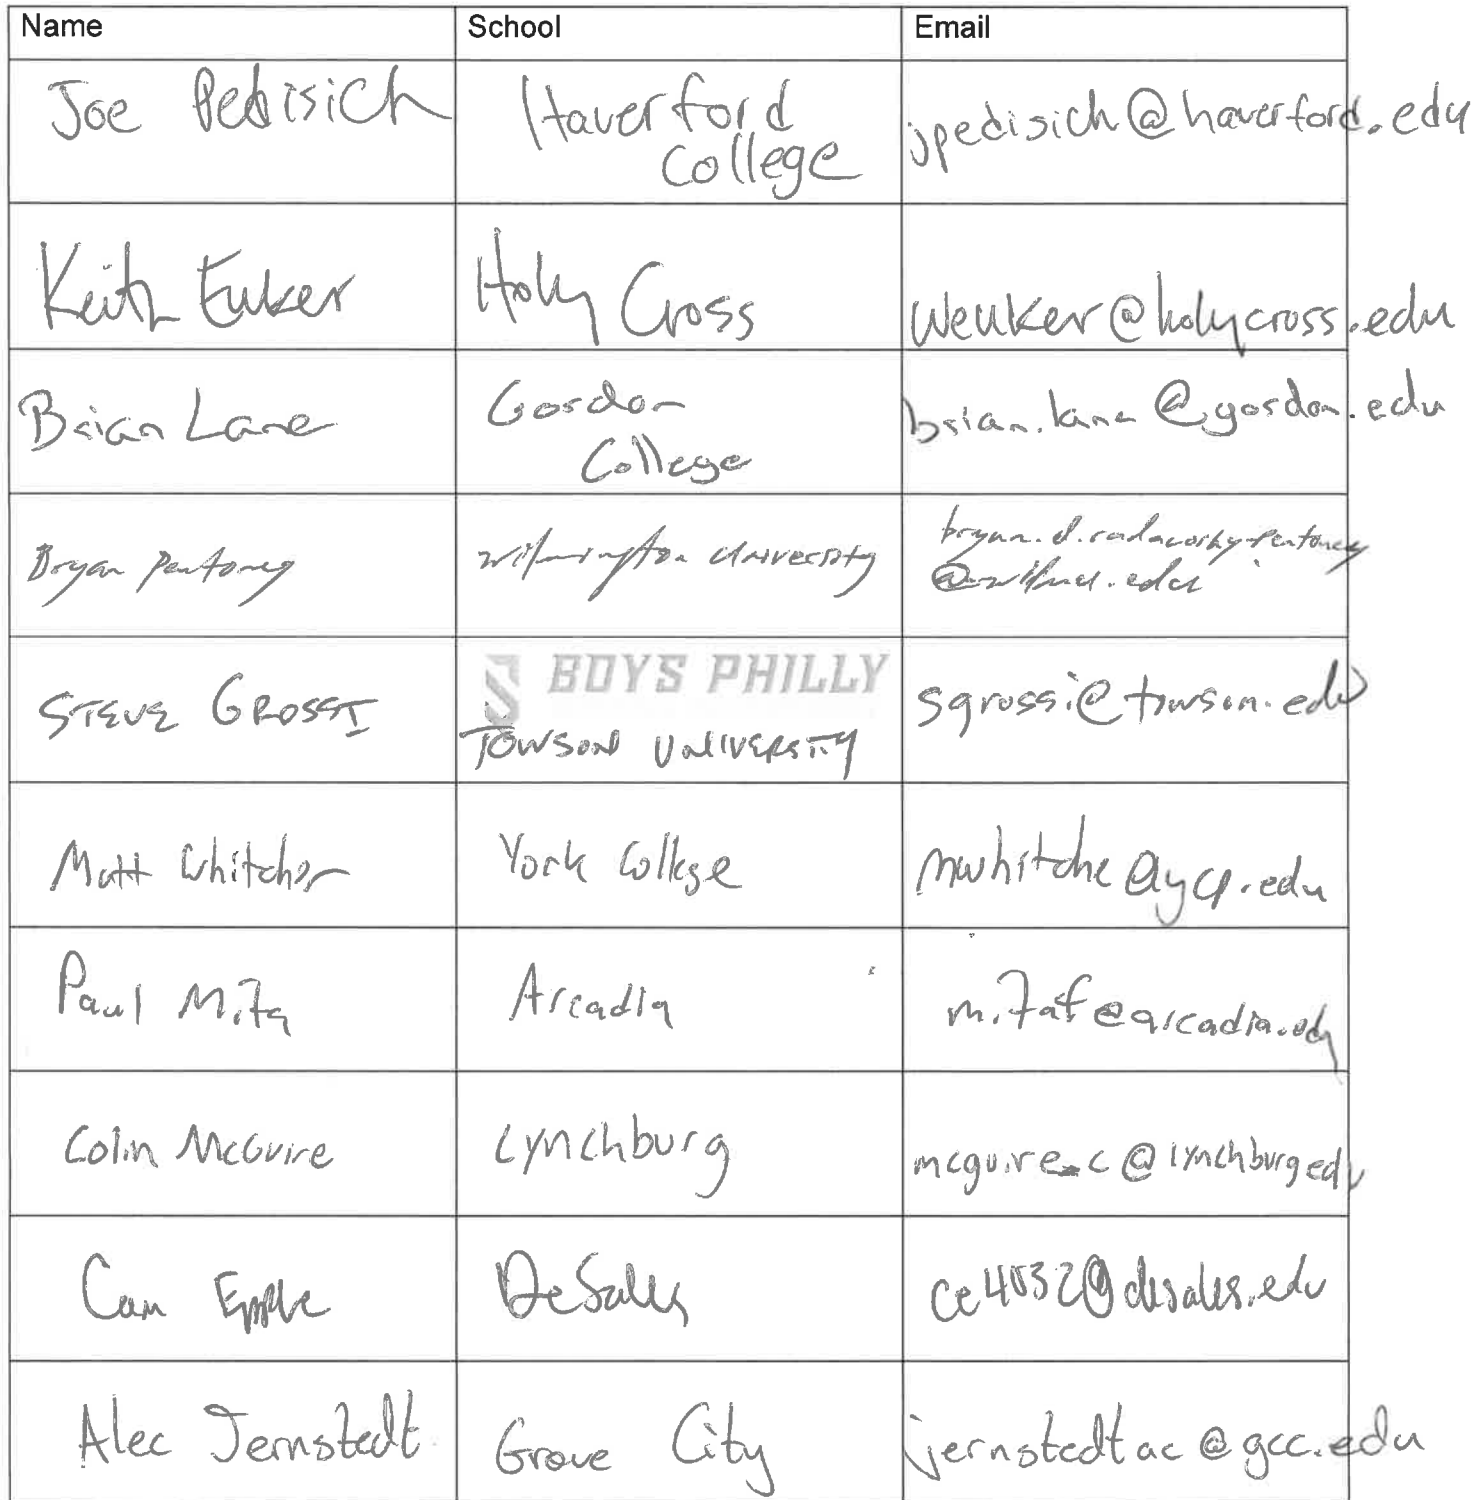 Name School Email
Joe Pedisich Haverford College jpedisich@haverford.edu
Keith Euker Holy Cross weuker@holycross.edu
Brian Lane Gordon College brian.lane@gordon.edu
Bryan Pentoney Wilmington University @wilmu.edu
BOYS PHILLY
STEVE GROSSI TOWSON UNIVERSITY sgrossi@towson.edu
Matt Whitcher York College mwhitche@ycp.edu
Paul Mita Arcadia mitaf@arcadia.edu
Colin McGuire Lynchburg mcguire_c@lynchburg.edu
Cam Epple DeSales ce4032@desales.edu
Alec Jernstedt Grove City jernstedtac@gcc.edu